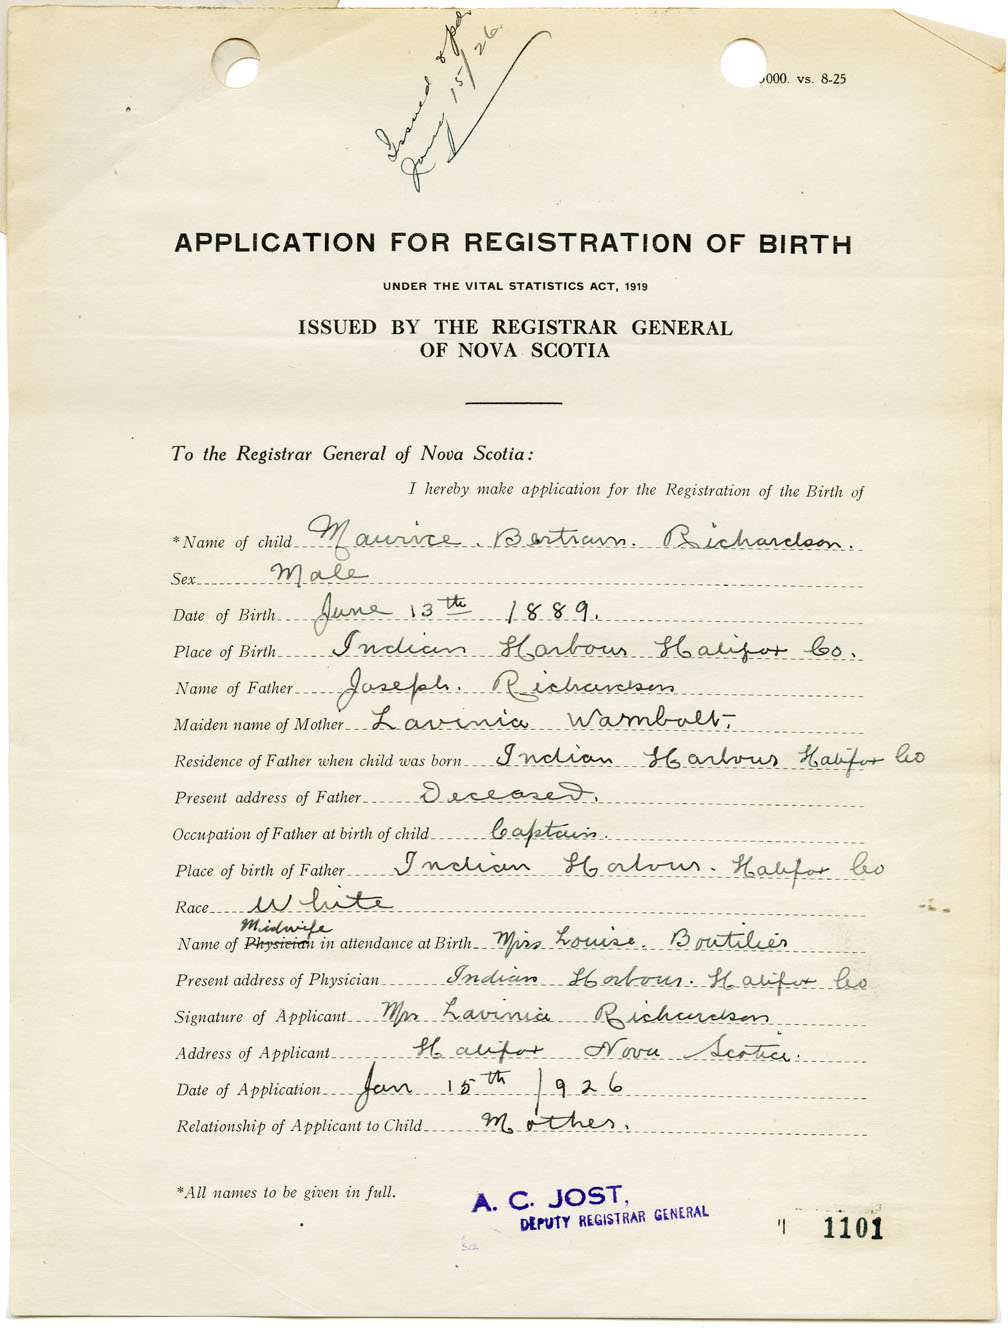 Issued & pd.
Jany 15/26
000. vs. 8-25
APPLICATION FOR REGISTRATION OF BIRTH
UNDER THE VITAL STATISTICS ACT, 1919
ISSUED BY THE REGISTRAR GENERAL
OF NOVA SCOTIA
To the Registrar General of Nova Scotia:
I hereby make application for the Registration of the Birth of
*Name of child Maurice. Bertram. Richardson.
Sex Male
Date of Birth June 13th 1889.
Place of Birth Indian Harbour Halifax Co.
Name of Father Joseph. Richardson
Maiden name of Mother Lavinia Wambolt.
Residence of Father when child was born Indian Harbour Halifax Co
Present address of Father Deceased.
Occupation of Father at birth of child Captain.
Place of birth of Father Indian Harbour. Halifax Co
Race White
Midwife
Name of Physician in attendance at Birth Mrs Louise. Boutilier
Present address of Physician Indian Harbour. Halifax Co
Signature of Applicant Mrs Lavinia Richardson
Address of Applicant Halifax Nova Scotia.
Date of Application Jan 15th 1926
Relationship of Applicant to Child Mother.
*All names to be given in full.
A. C. JOST,
DEPUTY REGISTRAR GENERAL
1101